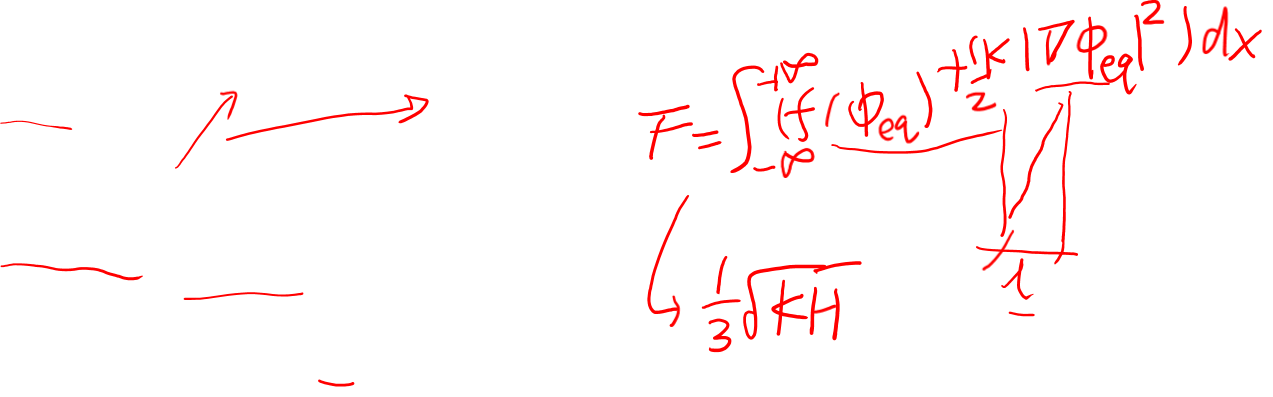 F = ∫_{-∞}^{+∞} (f(ϕ_eq) + 1/2 K |∇ϕ_eq|²) dx
l
↳ 1/3 √KH